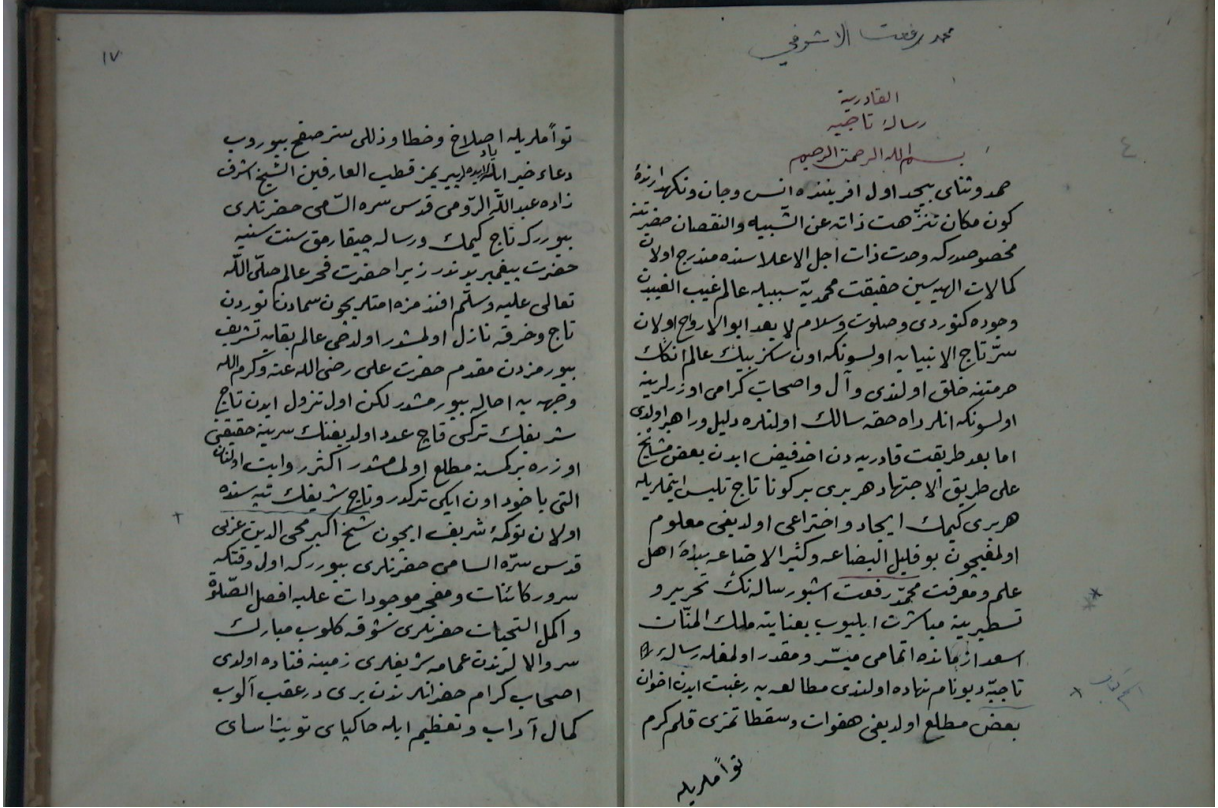 محمد رفعت الاشرفي
القادرية
رسالۀ تاجيه
بسم الله الرحمن الرحيم
حمد وثناى بيحد اول افريننده انس وجان ونكهدارندۀ
كون مكان تنزهت ذاته عن الشبيه والنقصان حضرتنه
مخصوصدركه وحدت ذات اجل الاعلاسنده مندرج اولان
كمالات الهيه سين حقيقت محمديه سببيله عالم غيب الغيبدن
وجوده كتوردى وصلوت وسلام لا يعد ابو الارواح اولان
سر تاج الانبيايه اولسونكه اون سكز بيك عالم انك
حرمتنه خلق اولندى وآل واصحاب كرامى اوزرلرينه
اولسونكه انلر راه حقه سالك اولنلره دليل وراهبر اولدى
اما بعد طريقت قادريه دن اخذ فيض ايدن بعض مشايخ
على طريق الاجتهاد هر برى بر كونا تاج تلبس ايتملريله
هر برى كيمك ايجاد واختراعى اولديغى معلوم
اولمغيچون بو قليل البضاعه وكثير الاضاعه بندۀ اهل
علم ومعرفت محمد رفعت اشبو رساله نك تحرير و
تسطيرينه مباشرت ايليوب بعناية ملك المنان
اسعد ازمانده اتمامى ميسر ومقدر اولمغله رسالۀ
تاجيه ديو نام نهاده اولندى مطالعه يه رغبت ايدن اخوان
بعض مطلع اولديغى هفوات وسقطاتمزى قلم كرم
توأملريله
١٧
توأملريله اصلاح وخطا وذللى ستر صفح بيوروب
دعاء خير ايله ياد ايده لر پيريمز قطب العارفين الشيخ اشرف
زاده عبد الله الرومى قدس سره السامى حضرتلرى
بيورركه تاج كيمك ورساله چيقارمق سنت سنيه
حضرت پيغمبريدندر زيرا حضرت فخر عالم صلى الله
تعالى عليه وسلم افندمزه امتلريچون سمادن نوردن
تاج وخرقه نازل اولمشدر اولدخى عالم بقايه تشريف
بيورمزدن مقدم حضرت على رضى الله عنه وكرم الله
وجهه يه احاله بيورمشدر لكن اول نزول ايدن تاج
شريفك تركى قاچ عدد اولديغنك سرينه حقيقتى
اوزره بر كسنه مطلع اولمامشدر اكثر روايت اولنان
التى ياخود اون ايكى تركدر وتاج شريفك تپه سنده
اولان توكمۀ شريف ايچون شيخ اكبر محى الدين عربى
قدس سره السامى حضرتلرى بيورركه اول وقتكه
سرور كائنات ومفخر موجودات عليه افضل الصلوة
واكمل التحيات حضرتلرى شوقه كلوب مبارك
سر والالرندن عمامه شريفلرى زمينه فتاده اولدى
اصحاب كرام حضراتلرندن برى در عقب آلوب
كمال آداب وتعظيم ايله خاكپاى توتياساى